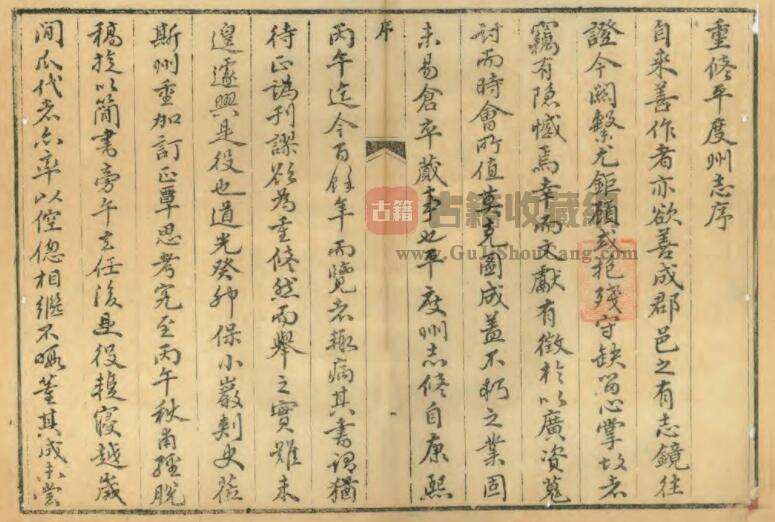 重修平度州志序
自来善作者亦欲善成郡邑之有志鏡往
證今關繫尤鉅顧或抱殘守缺留心掌故者
竊有隐憾焉幸而文獻有徵於以廣资蒐
討而時會所值莫克圖成蓋不朽之業固
未易倉卒蕆事也平度州志修自康熙
序
丙午迄今百餘年而覽者輒病其书謂猶
待正譌刊謬欲為重修然而舉之實難未
遑遽興是役也道光癸卯保小巖刺史蒞
斯州重加訂正覃思考究至丙午秋甫經脫
稿旋以簡書旁午去任後是役輟寢越歲
间瓜代者亦率以倥偬相繼不暇董其成未嘗
古籍
古籍收藏網
www.GuJiShouCang.com